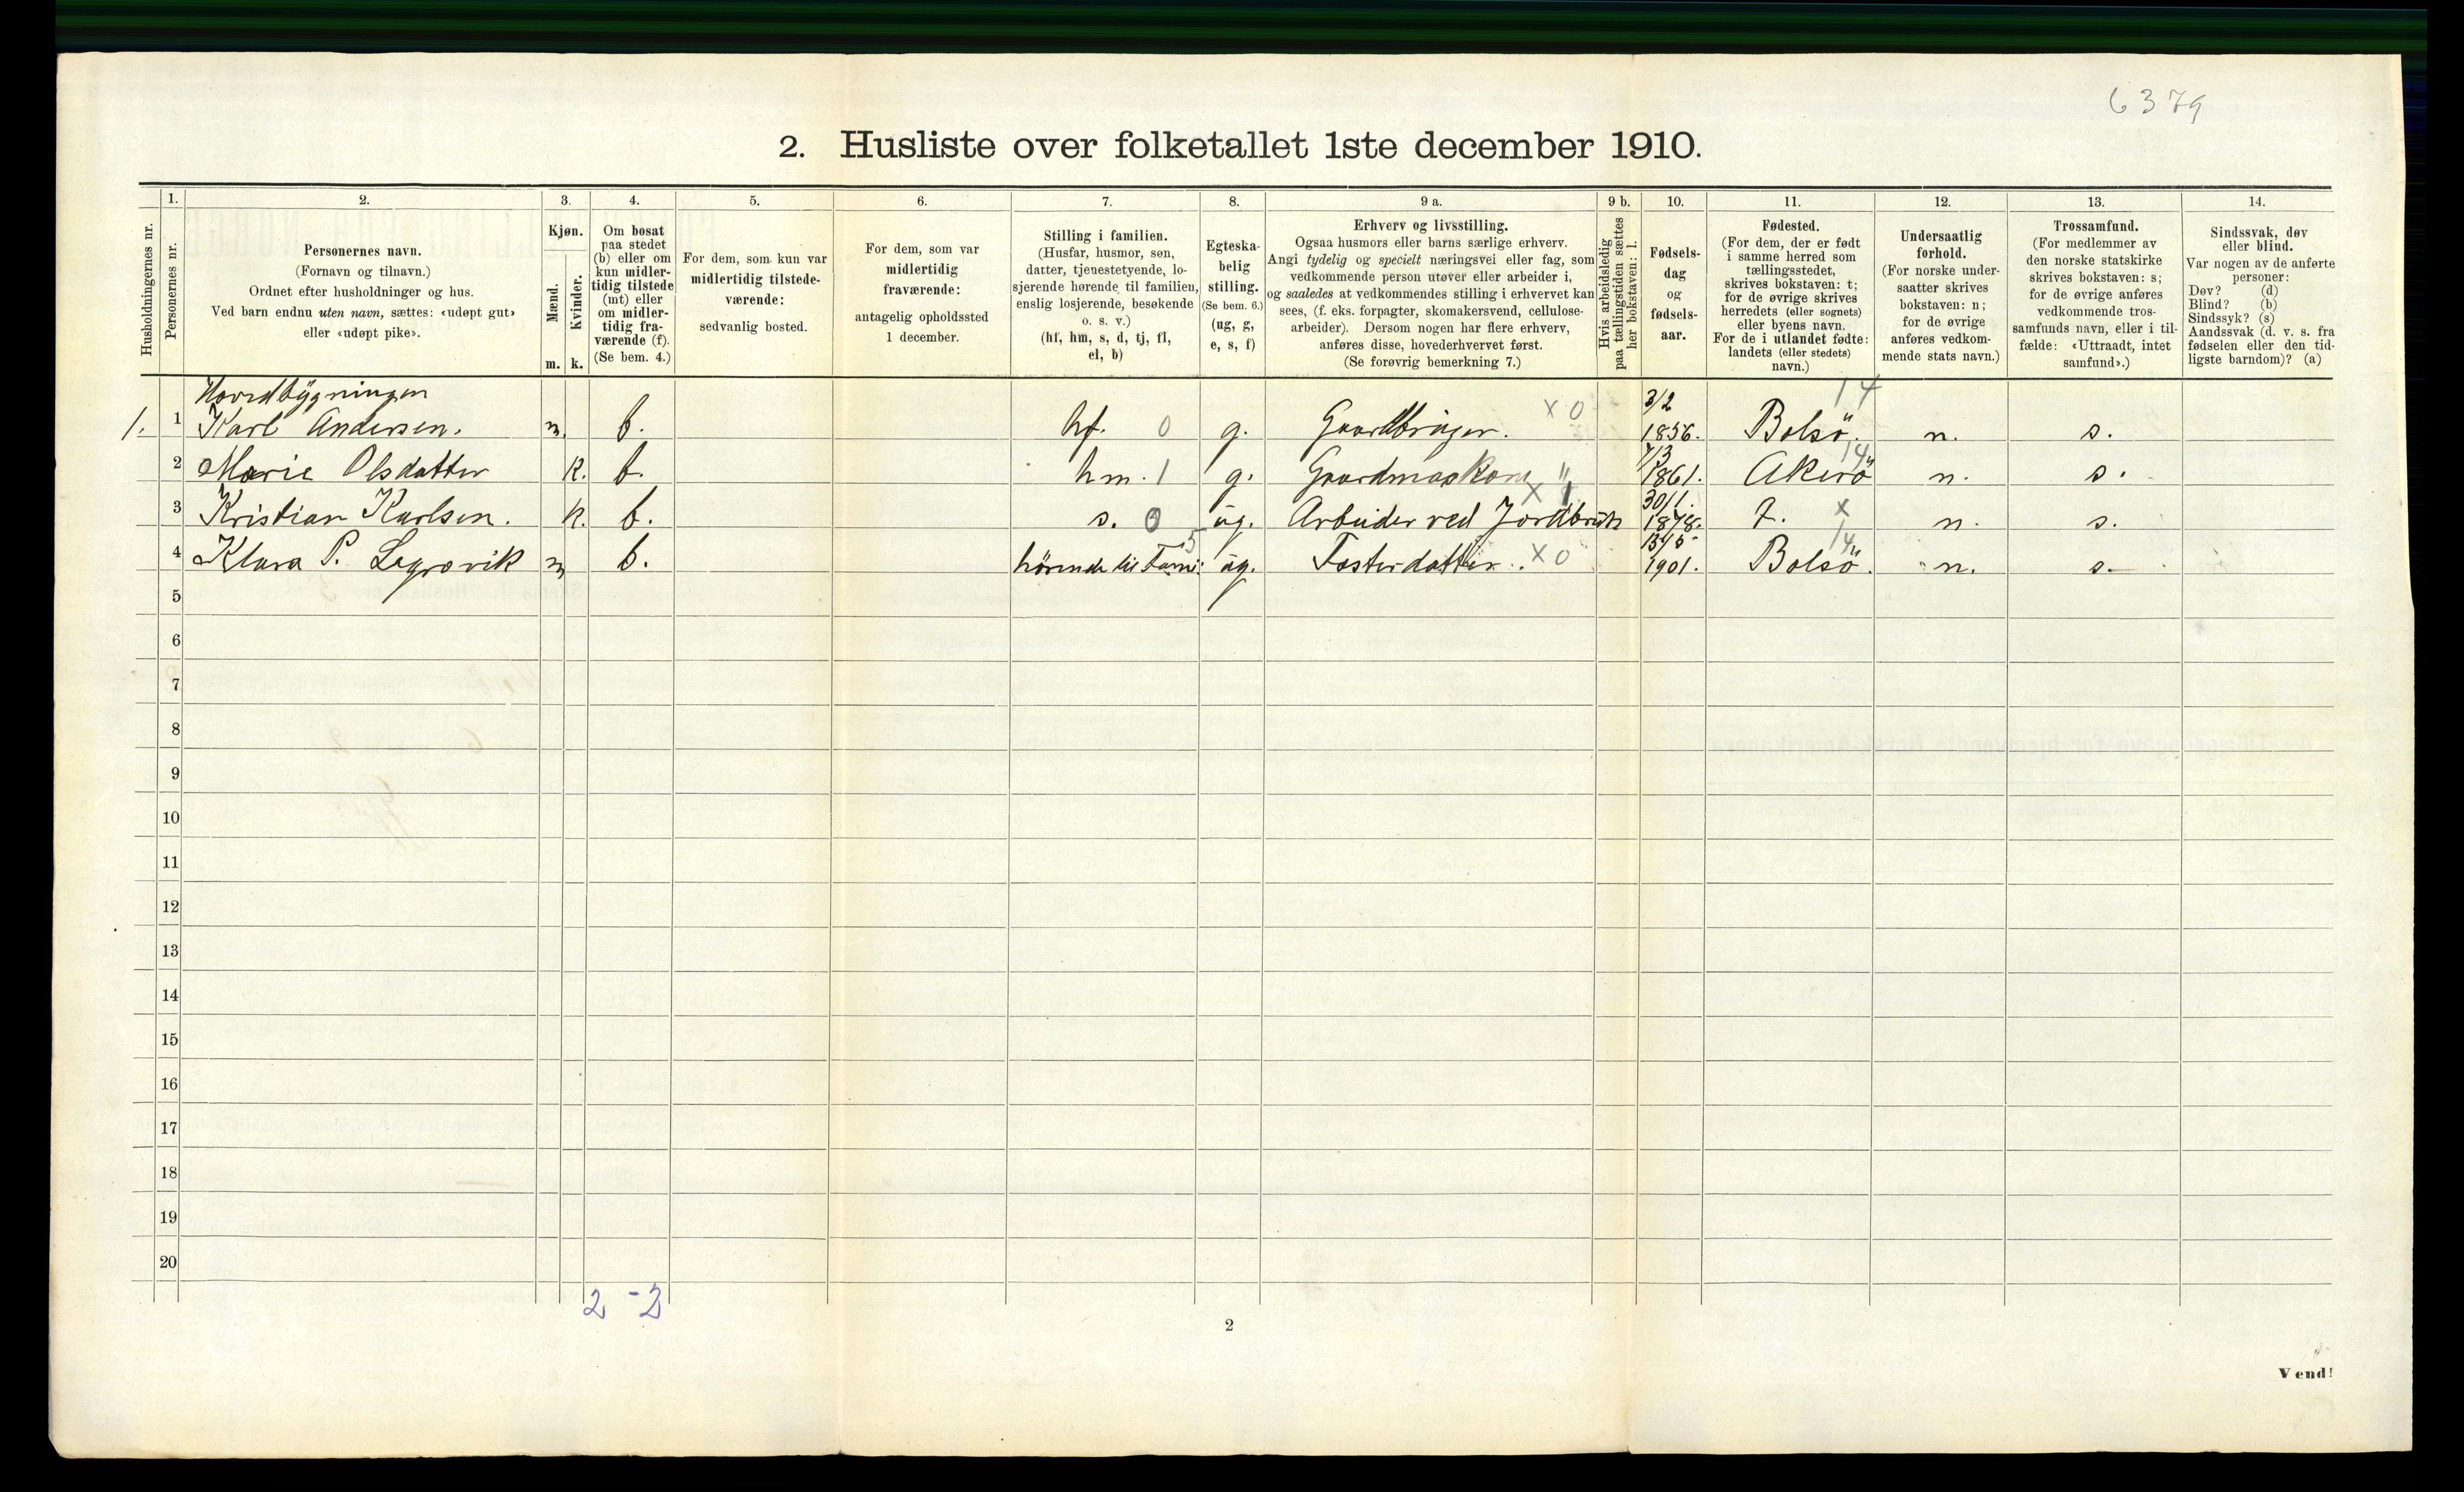 6379
2. Husliste over folketallet 1ste december 1910.
Husholdningernes nr.
1.
Personernes nr.
2.
Personernes navn.
(Fornavn og tilnavn.)
Ordnet efter husholdninger og hus.
Ved barn endnu uten navn, sættes: «udøpt gut»
eller «udøpt pike».
3.
Kjøn.
Mænd.
Kvinder.
m. k.
4.
Om bosat
paa stedet
(b) eller om
kun midler-
tidig tilstede
(mt) eller
om midler-
tidig fra-
værende (f).
(Se bem. 4.)
5.
For dem, som kun var
midlertidig tilstede-
værende:
sedvanlig bosted.
6.
For dem, som var
midlertidig
fraværende:
antagelig opholdssted
1 december.
7.
Stilling i familien.
(Husfar, husmor, søn,
datter, tjenestetyende, lo-
sjerende hørende til familien,
enslig losjerende, besøkende
o. s. v.)
(hf, hm, s, d, tj, fl,
el, b)
8.
Egteska-
belig
stilling.
(Se bem. 6.)
(ug, g,
e, s, f)
9 a.
Erhverv og livsstilling.
Ogsaa husmors eller barns særlige erhverv.
Angi tydelig og specielt næringsvei eller fag, som
vedkommende person utøver eller arbeider i,
og saaledes at vedkommendes stilling i erhvervet kan
sees, (f. eks. forpagter, skomakersvend, cellulose-
arbeider). Dersom nogen har flere erhverv,
anføres disse, hovederhvervet først.
(Se forøvrig bemerkning 7.)
9 b.
Hvis arbeidsledig
paa tællingstiden sættes
her bokstaven: l.
10.
Fødsels-
dag
og
fødsels-
aar.
11.
Fødested.
(For dem, der er født
i samme herred som
tællingsstedet,
skrives bokstaven: t;
for de øvrige skrives
herredets (eller sognets)
eller byens navn.
For de i utlandet fødte:
landets (eller stedets)
navn.)
12.
Undersaatlig
forhold.
(For norske under-
saatter skrives
bokstaven: n;
for de øvrige
anføres vedkom-
mende stats navn.)
13.
Trossamfund.
(For medlemmer av
den norske statskirke
skrives bokstaven: s;
for de øvrige anføres
vedkommende tros-
samfunds navn, eller i til-
fælde: «Uttraadt, intet
samfund».)
14.
Sindssvak, døv
eller blind.
Var nogen av de anførte
personer:
Døv? (d)
Blind? (b)
Sindssyk? (s)
Aandssvak (d. v. s. fra
fødselen eller den tid-
ligste barndom)? (a)
Hovedbygningen
1. 1 Karl Andersen. m. b. hf. 0 g. Gaardbruger. x 0 3/2 1856. Bolsö. 14 n. s.
2 Marie Olsdatter k. b. hm. 1 g. Gaardmaskone " 1861. Akerö 14 n. s.
3 Kristian Karlsen. k. b. s. 0 ug. Arbeider ved Jordbruk x 1 30/1 1878. t. x n. s.
4 Klara P. Legrovik m b. hörende til Fami: 5 ug. Fosterdatter. x 0 13/5 1901. Bolsö. 14 n. s.
5
6
7
8
9
10
11
12
13
14
15
16
17
18
19
20
2 - 2
2
Vend!